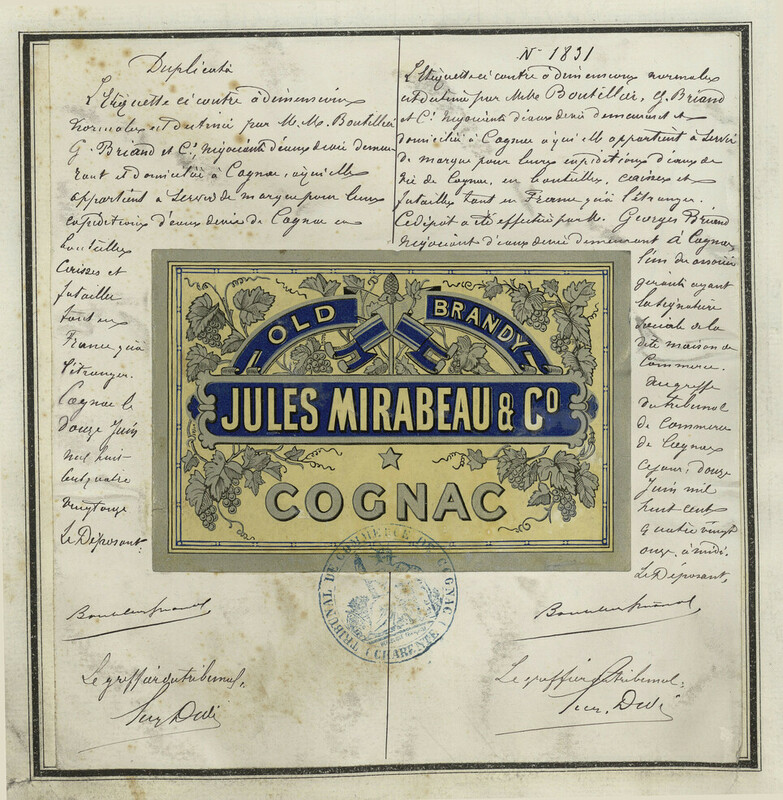 Duplicata
L'Etiquette ci contre à dimensions
normales est destinée par M.M. Boutillier
G. Briand et Cie, négociants d'eaux de vie demeu
rant et domiciliés à Cognac, à qui elle
appartient à servir de marque pour leurs
expéditions d'eaux de vie de Cognac en
bouteilles
Caisses et
futailles
tant en
France qu'à
l'étranger.
Cognac le
douze Juin
mil huit
cent quatre
vingt onze
Le Déposant.
Le greffier du tribunal,
N° 1831
L'Etiquette ci contre à dimensions normales
est destinée par MM. Boutillier, G. Briand
et Cie négociants d'eaux de vie demeurant et
domiciliés à Cognac à qui elle appartient à servir
de marque pour leurs expéditions d'eaux de
vie de Cognac, en bouteilles, caisses et
futailles tant en France qu'à l'étranger.
Ce dépôt a été effectué par M. Georges Briand
négociant d'eaux de vie demeurant à Cognac
l'un des associés
gérants ayant
la signature
sociale de la
dite maison de
Commerce.
au greffe
du tribunal
de Commerce
de Cognac
ce jour, douze
Juin mil
huit cent
quatre vingt
onze, à midi.
Le Déposant,
Le greffier du tribunal,
OLD BRANDY
JULES MIRABEAU & Co
COGNAC
TRIBUNAL DE COMMERCE DE COGNAC
(CHARENTE)